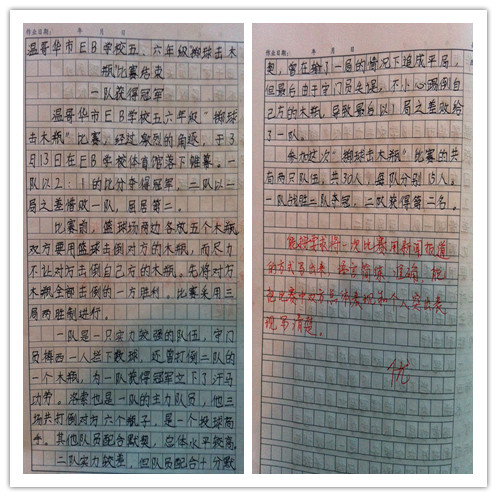 作业日期： 年 月 日
温哥华市EB学校五、六年级“掷球击木
瓶”比赛结束
一队获得冠军
温哥华市EB学校五六年级“掷球
击木瓶”比赛，经过激烈的角逐，于3
月13日在EB学校体育馆落下帷幕。一
队以2：1的比分夺得冠军，二队以一
局之差惜败一队，屈居第二。
比赛前，篮球场两边各放五个木瓶，
双方要用篮球击倒对方的木瓶，而尽力
不让对方击倒自己方的木瓶。先将对方
木瓶全部击倒的一方胜利。比赛采用三
局两胜制进行。
一队是一只实力较强的队伍，守门
员梅西一人拦下数球，还曾打倒二队的
一个木瓶，为一队获得冠军立下了汗马
功劳。洛索也是一队的主力队员，他三
场共打倒对方六个瓶子，是一个投球高
手。其他队员配合默契，总体水平较高。
二队实力较差，但队员配合十分默
作业日期： 年 月 日
契，曾在输了一局的情况下造成平局，
但最后由于守门员失误，不小心踢倒自
己方的木瓶，导致最后以1局之差败给
了一队。
参加这次“掷球击木瓶”比赛的共
有两只队伍，共30人，每队分别15人。
一队战胜二队夺冠，二队获得第二名。
能按要求将一次比赛用新闻报道
的方式写出来，语言简练、准确，把
在比赛中双方总体表现和个人突出表
现写清楚。
优